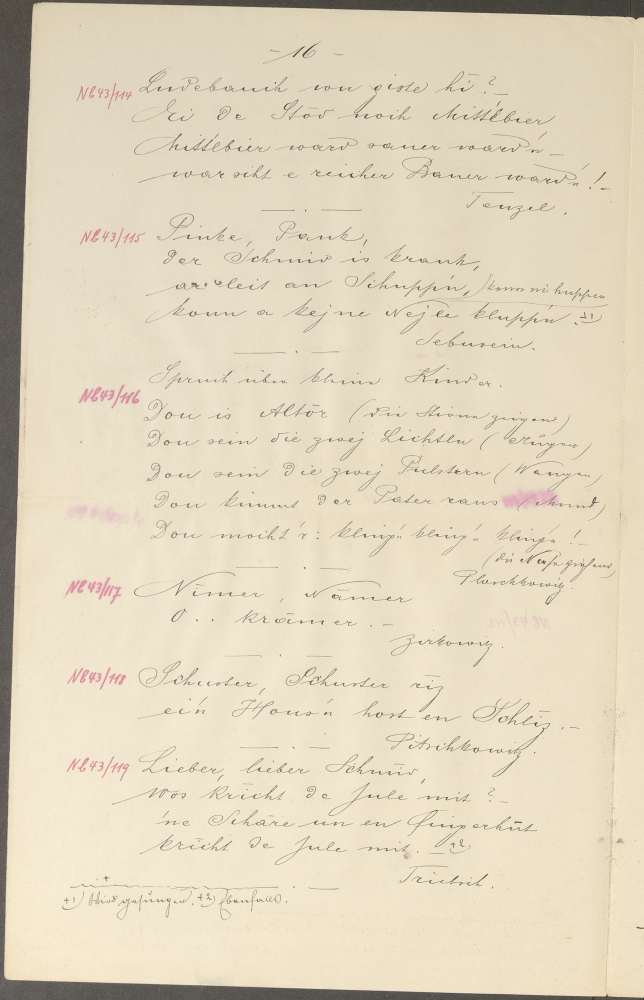 - 16 -
NB43/114 Ludebauik wu giste hi? -
Ei de Stôd noch Mittelbier
Mittelbier ward sauer ward'n -
war siht e reicher Bauer ward'n! -
Tenzel.
NB43/115 Pinke, Pank,
der Schmid is krank,
ar leit an Schupp'n, konn ni huppen
konn a kejne Nejle klupp'n. +1)
Sebusein.
NB43/116 Spruch über kleine Kinder.
Dou is Altôr (die Stirne zeigend)
Dou sein die zwej Lichtln (Augen)
Dou sein die zwej Pulstern (Wangen)
Dou kimmt der Pater raus (Mund)
Dou moicht'r: kling'n kling'n kling'n! -
(die Nase greifend)
Ploschkowitz.
NB43/117 Nimer, Namer
O.. krämer. -
Zirkowitz.
NB43/118 Schuster, Schuster rîz
ei'n Hous'n host en Schlîz. -
Pitschkowitz.
NB43/119 Lieber, lieber Schmîd,
Wos kricht de Jule mit? -
'ne Schäre un en Fingerhut
kricht de Jule mit. - +2)
Triebsch.
+1) Wird gesungen. +2) Ebenfalls.